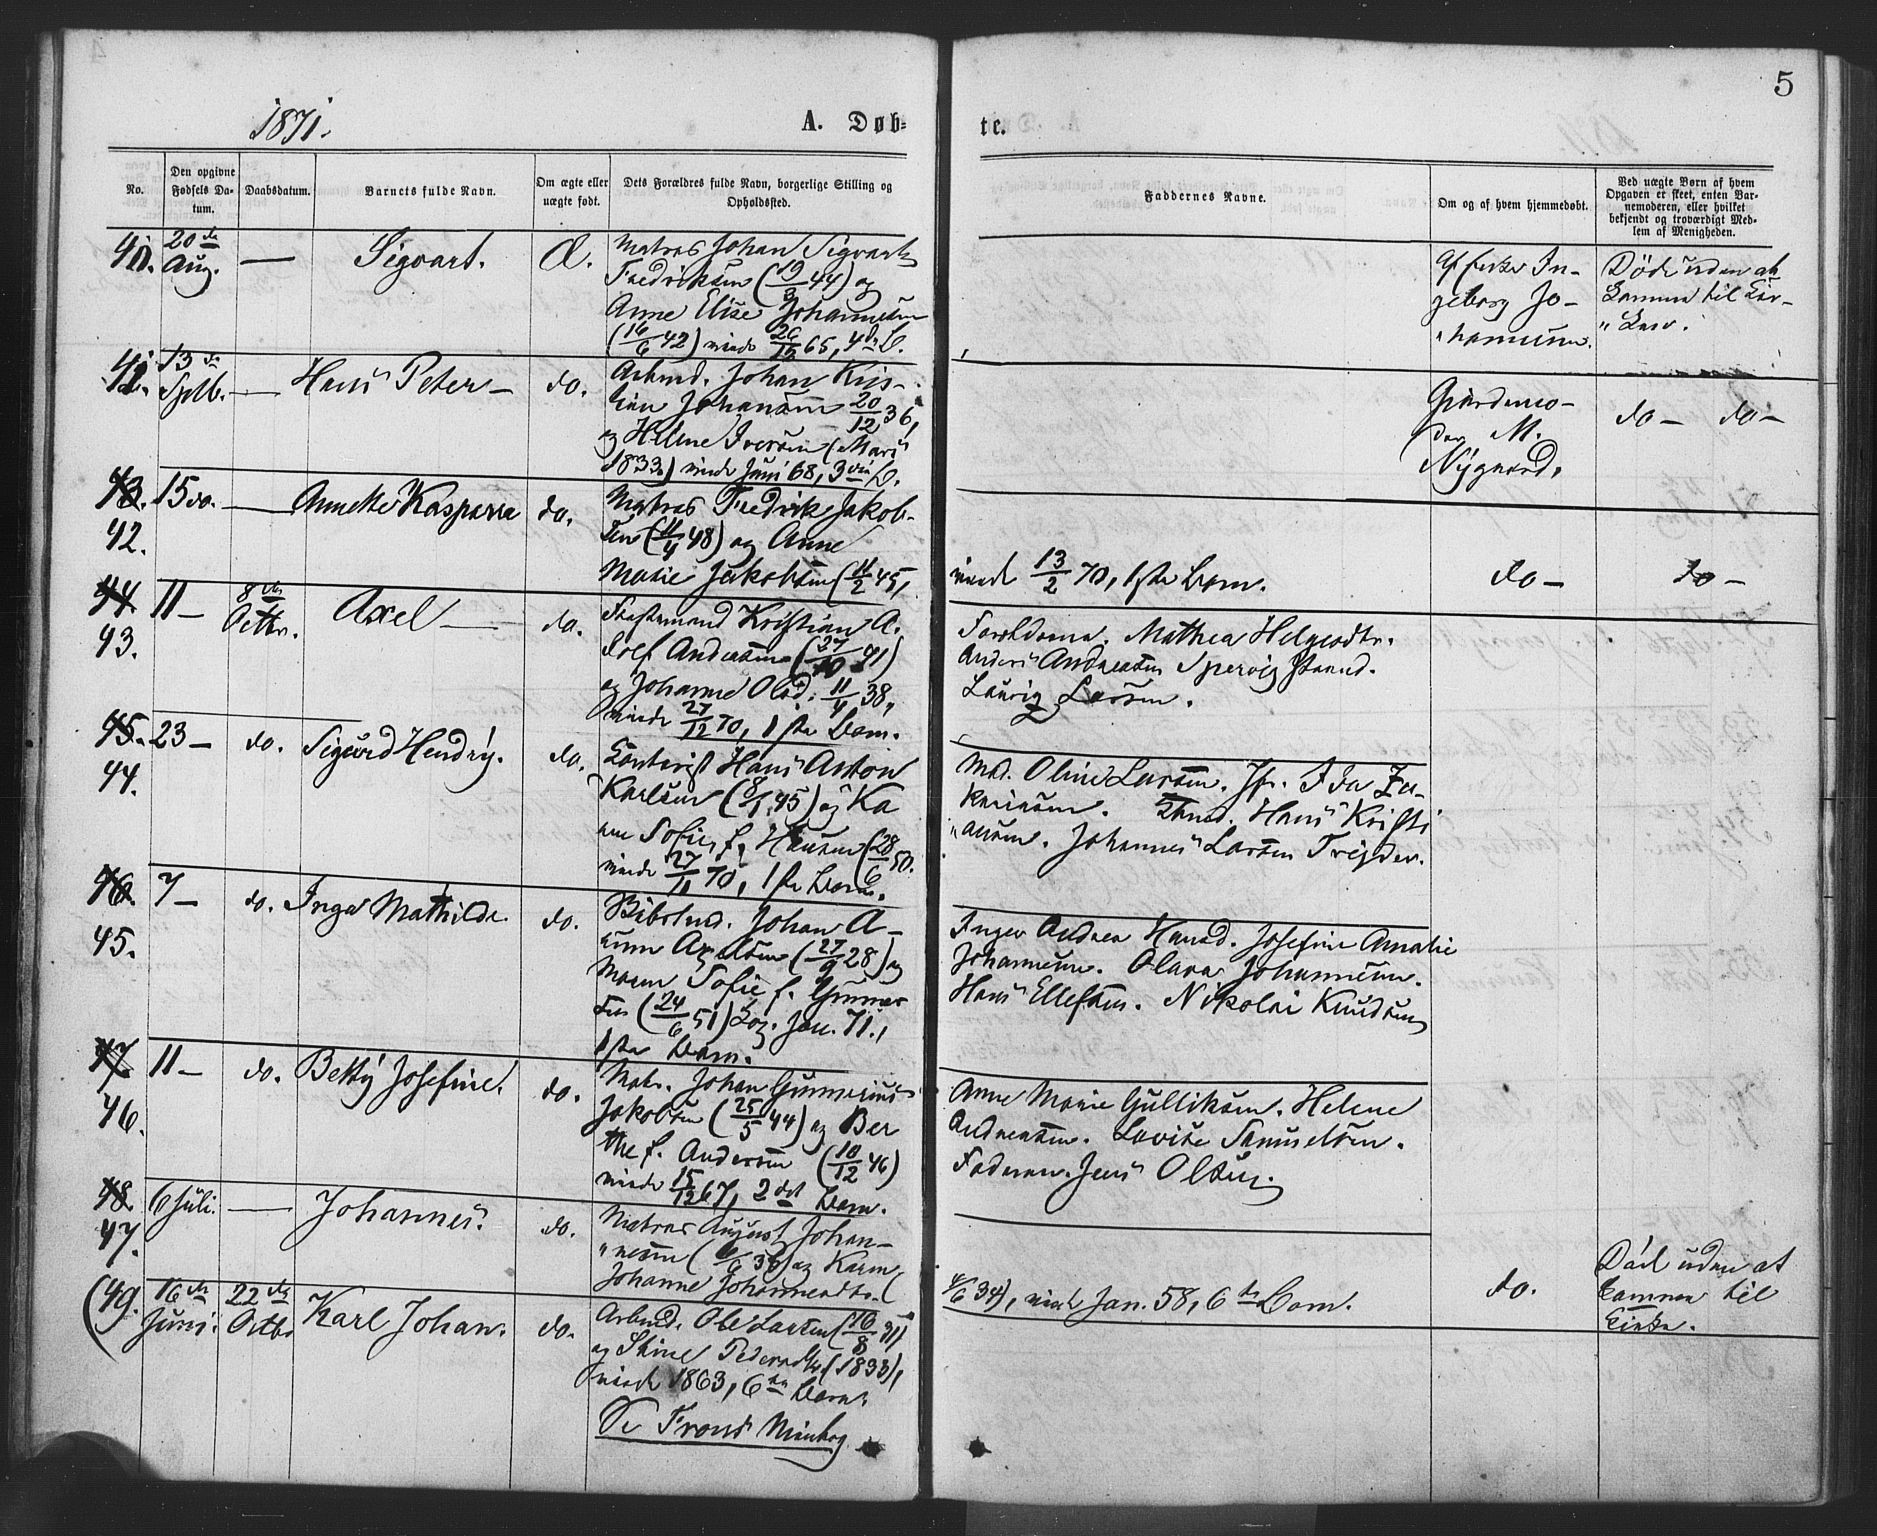 5
1871.
A. Døb-
te.
No.
Den opgivne Fødsels Da-tum.
Daabsdatum.
Barnets fulde Navn.
Om ægte eller uægte født.
Dets Forældres fulde Navn, borgerlige Stilling og Opholdssted.
Faddernes Navne.
Om og af hvem hjemmedøbt.
Ved uægte Børn af hvem Opgaven er skeet, enten Bar-nemoderen, eller hvilket bekjendt og troværdigt Med-lem af Menigheden.
20 de Aug. — Sigvart. Æ.
Matros Johan Sigvart
Fredriksen (19/3 44) og
Anne Elise Johannesen
(16/6 42) viede 26/12 65, 4de B.
Ingeborg Jo-
hannesen.
Død uden at
komme til Kir-
ken.
13 de Sptb. — Hans Peter — do.
Arbmd. Johan Kris-
tian Johansen 20/12 36,
og Helene Iversen (Marts
1833) viede Juni 68, 3die B.
Gjordemo-
der M.
Nygaard.
do — do —
43. 15 do. — Annette Kaspara do.
42.
Matros Fredrik Jakob-
sen (11/4 48) og Anne
Marie Jakobsen (11/2 45,
viede 13/2 70, 1ste Barn.
do —
do —
44 11 — 8de Octbr. Axel — do.
43.
Kristian A-
dolf Andersen (27/10 41)
og Johanne Olsd. 11/4 38,
viede 27/12 70, 1ste Barn.
Forældrene. Mathea Helgesdtr.
Anders Andreasen
Lauritz Larsen.
45. 23 — do. Sigurd Hendry. do.
44.
Kontorist Hans Anton
Karlsen (8/1 45) og Ka-
ren Sofie, f. Hansen (28/6 50.
viede 27/11 70, 1ste Barn.
Mad. Oline Larsen. Jfr. Ida Za-
kariasen. Hans Kristi
ansen. Johannes Larsen
46. 7 — do. Inga Mathilde. do.
45.
Johan A-
Axelsen (27/9 28) og
Maren Sofie f. Gunner
sen (24/6 51) Jan. 71,
1ste Barn.
Inger Andrea Hansd. Josefine Amalie
Johannesen. Olava Johannesen.
Hans Ellefsen. Nikolai Knudsen
47. 11 — do. Betty Josefine. do.
46.
Matr. Johan Gunnerius
Jakobsen (25/5 44) og Ber
the f. Andersen (10/12 46)
viede 15/12 67, 2det Barn.
Anne Marie Gulliksen. Helene
Andreasen. Lovise Samuelsen.
Faderen. Jens Olsen.
48. 6 Juli. — Johannes. do.
47.
Matros August Johan-
nesen ( og Karen
Johanne Johannesdtr. (
4/6 34), viede Jan. 58, 6te Barn.
do.
Død uden at
komme til
Kirke.
(49. 16 de Juni. 22 de Octbr Karl Johan. do.
Arbmd. Ole Larsen (16/8 31)
og Stine Pedersd. (1833),
viede 1863, 6te Barn.
Se Frons Minbog